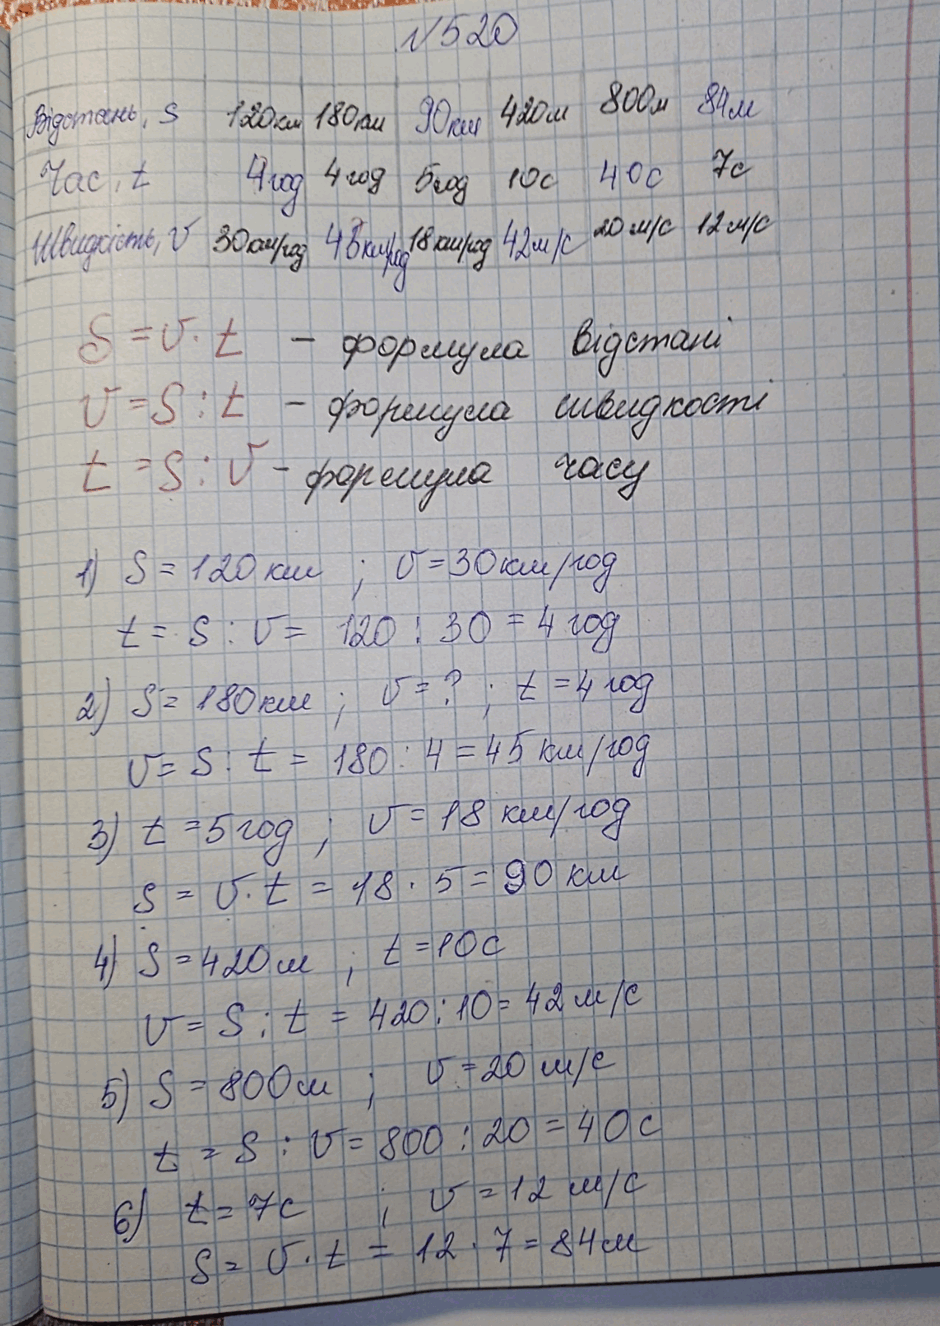 №520
Відстань, S 120км 180км 90км 420м 800м 84м
Час, t 4год 4год 5год 10с 40с 7с
Швидкість, v 30км/год 45км/год 18км/год 42м/с 20м/с 12м/с
S = v · t – формула відстані
v = S : t – формула швидкості
t = S : v – формула часу
1) S = 120 км ; v = 30 км/год
t = S : v = 120 : 30 = 4 год
2) S = 180 км ; v = ? ; t = 4 год
v = S : t = 180 : 4 = 45 км/год
3) t = 5 год ; v = 18 км/год
S = v · t = 18 · 5 = 90 км
4) S = 420 м ; t = 10 с
v = S : t = 420 : 10 = 42 м/с
5) S = 800 м ; v = 20 м/с
t = S : v = 800 : 20 = 40 с
6) t = 7 с ; v = 12 м/с
S = v · t = 12 · 7 = 84 м